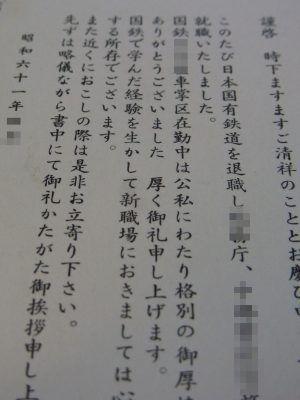 謹啓 時下ますますご清祥のこととお慶び
このたび日本国有鉄道を退職し 庁、
就職いたしました。
国鉄 車掌区在勤中は公私にわたり格別の御厚
ありがとうございました 厚く御礼申し上げます。
国鉄で学んだ経験を生かして新職場におきましては
する所存でございます。
また近くにおこしの際は是非お立寄り下さい。
先ずは略儀ながら書中にて御礼かたがた御挨拶申し上
昭和六十一年